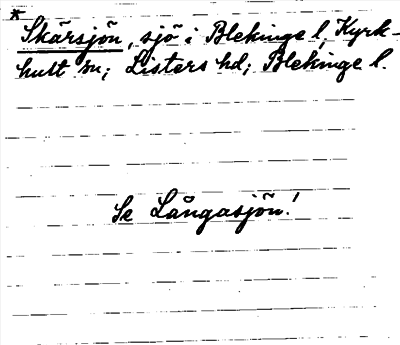 *
Skärsjön, sjö i Blekinge l, Kyrk-
hult sn; Listers hd; Blekinge l.
Se Långasjön!